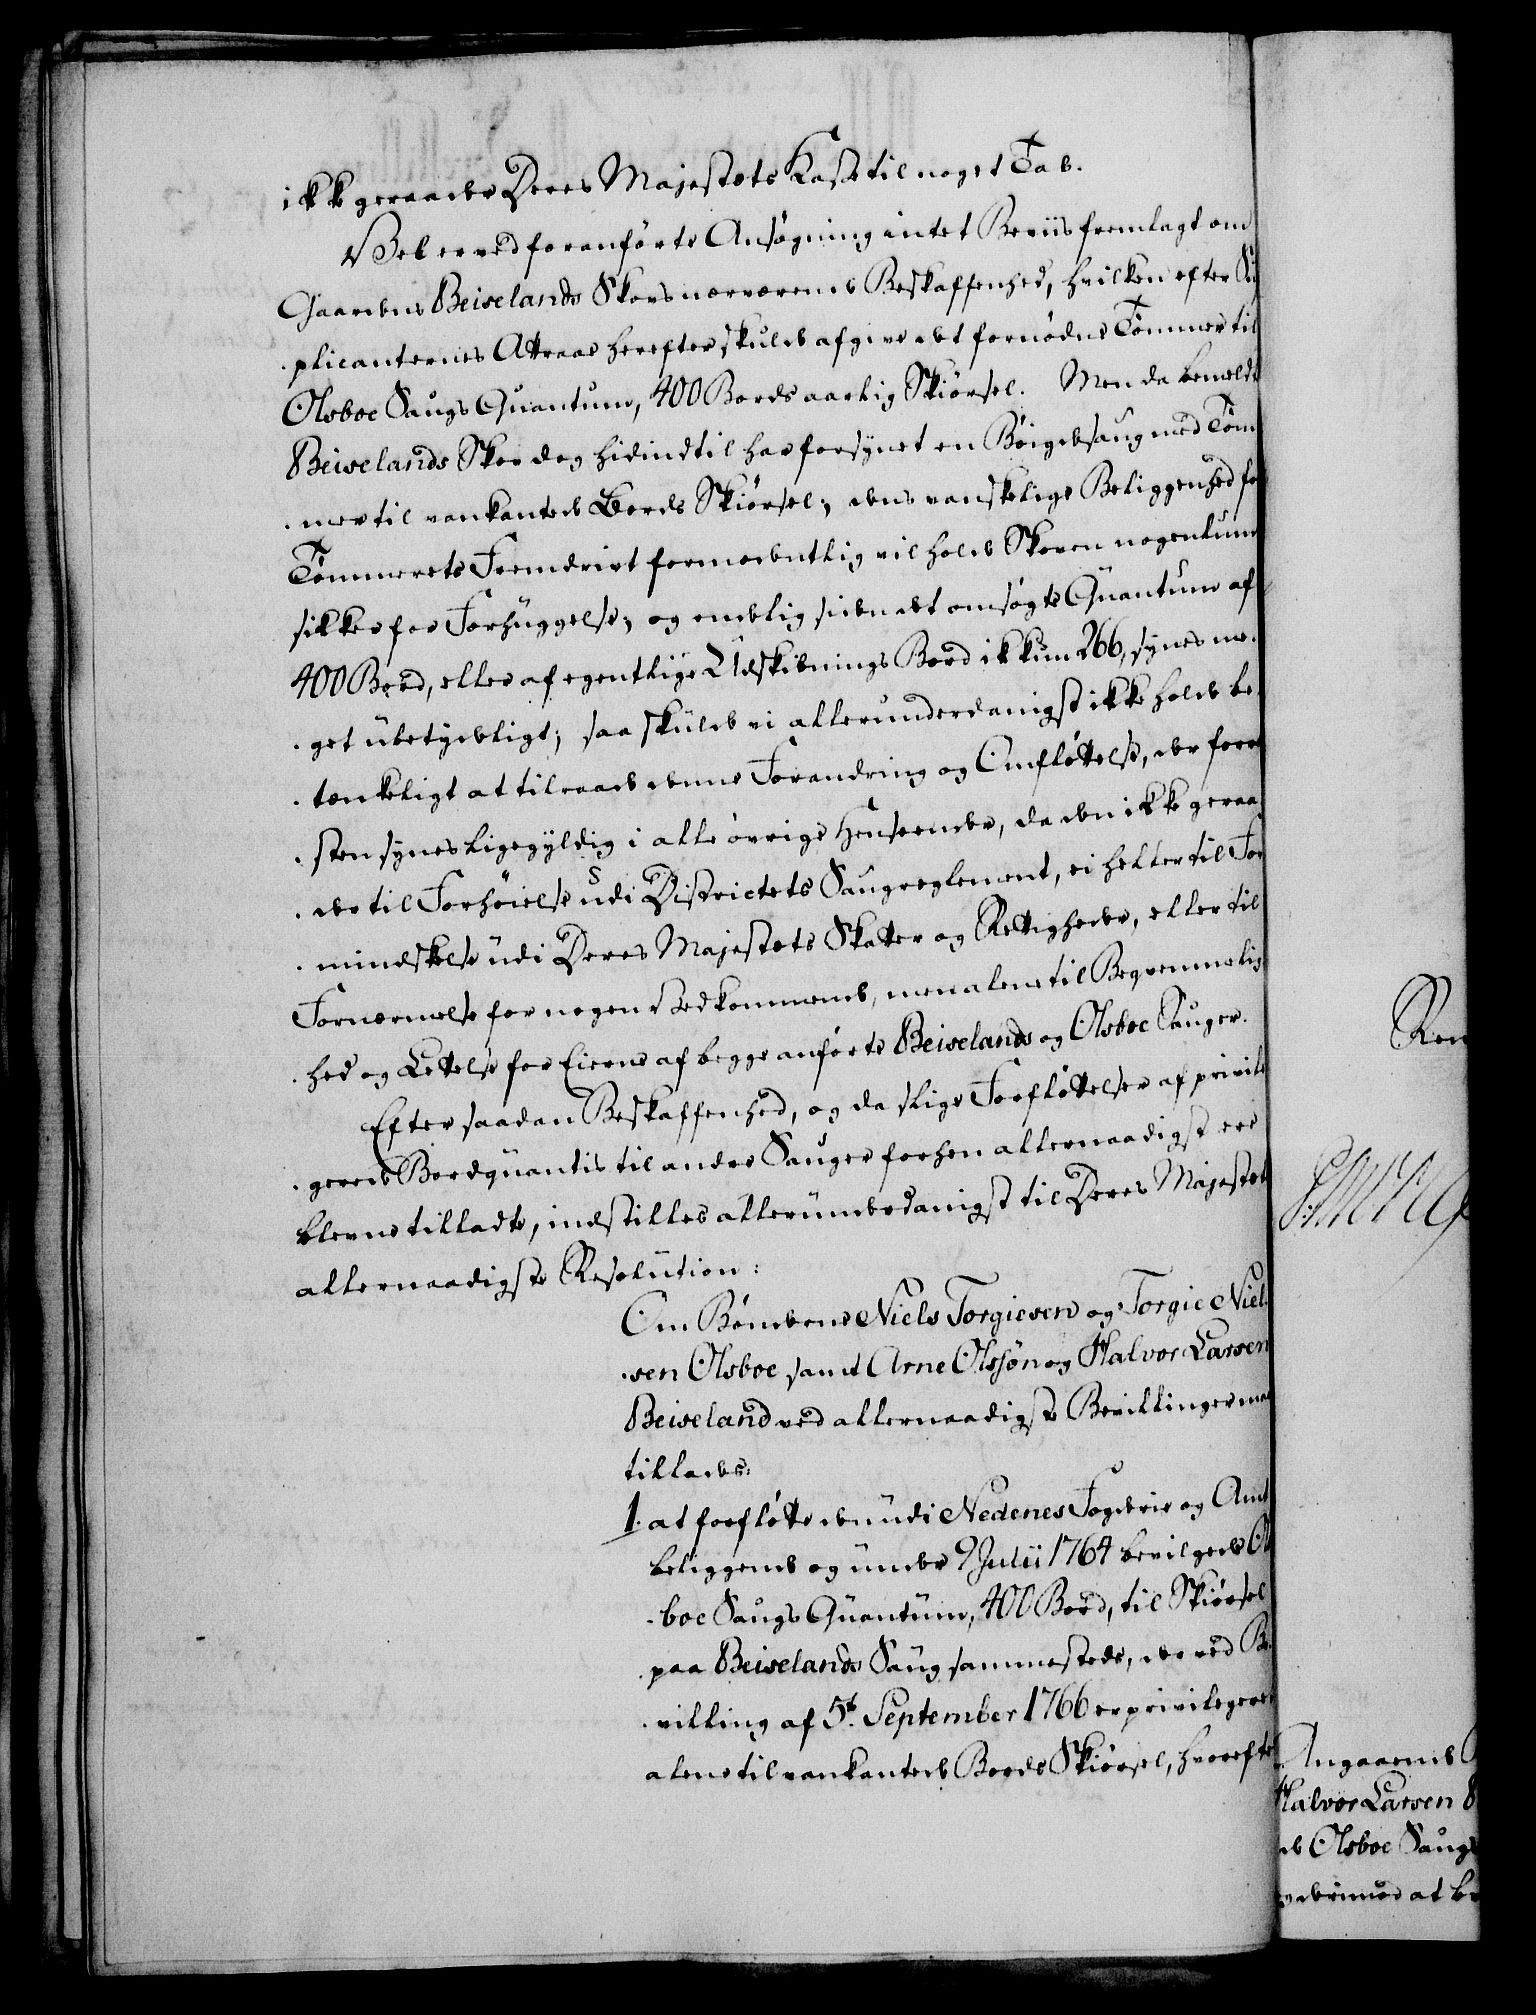 ikke geraade Deres Majestæts Kasse til noget Tab.
Vel er ved foranførte Ansøgning intet Beviis fremlagt om
Gaardens Beiselands Skovs nærværende Beskaffenhed, hvilken efter Su
plicanternes Attraae herefter skulde afgive det fornødne Tømmer til
Olsboe Saugs Quantum, 400 Bords aarlig Skiørsel. Men da bemeldte
Beiselands Skov dog hidindtil har forsynet en Bøigdesaug med Töm
mer til vankantede Bords Skiørsel; dens vanskelige Beliggenhed for
Tømmerets Fremdrivt formodentlig vil holde Skoven nogenlunde
sikker for Forhuggelse; og endelig siden det omsøgte Quantum af
400 Bord, eller af egentlige Udskibnings Bord ikkun 266, synes me
get ubetydeligt; saa skulde vi allerunderdanigst ikke holde be
tænkeligt at tilraade denne Forandring og Omfløttelse, der forre
sten synes ligegyldig i alle øvrige Henseender, da den ikke geraa
der til Forhøielse udi Districtets Saugreglement, ei heller til For
mindskelse udi Deres Majestæts Skatter og Rettigheder, eller til
Fornærmelse for nogen Vedkommende, men alene til Beqvemmelig
hed og Lettelse for Eierne af begge anførte Beiselands og Olsboe Sauger.
Efter saadan Beskaffenhed, og da slige Forfløttelser af privile
gerede Bordquantis til andre Sauger forhen allernaadigst ere
blevne tilladte, indstilles allerunderdanigst til Deres Majestæts
allernaadigste Resolution:
Om Bønderne Niels Torgiesen og Torgie Niel
sen Olsboe samt Arne Olssøn og Halvor Larsen
Beiseland ved allernaadigste Bevillinger maa
tillades:
1. at forfløtte den udi Nedenes Fogderie og Amt
beliggende og under 9 Julii 1764 bevilgede Ols
boe Saugs Quantum, 400 Bord, til Skiørsel
paa Beiselands Saug sammesteds, der ved Be
villing af 5t. September 1766 er privilegeret
alene til vankantede Bords Skiørsel, hvorefter
Ren
Angaaende
Halvor Larsen
de Olsboe Saugs
derimod at be